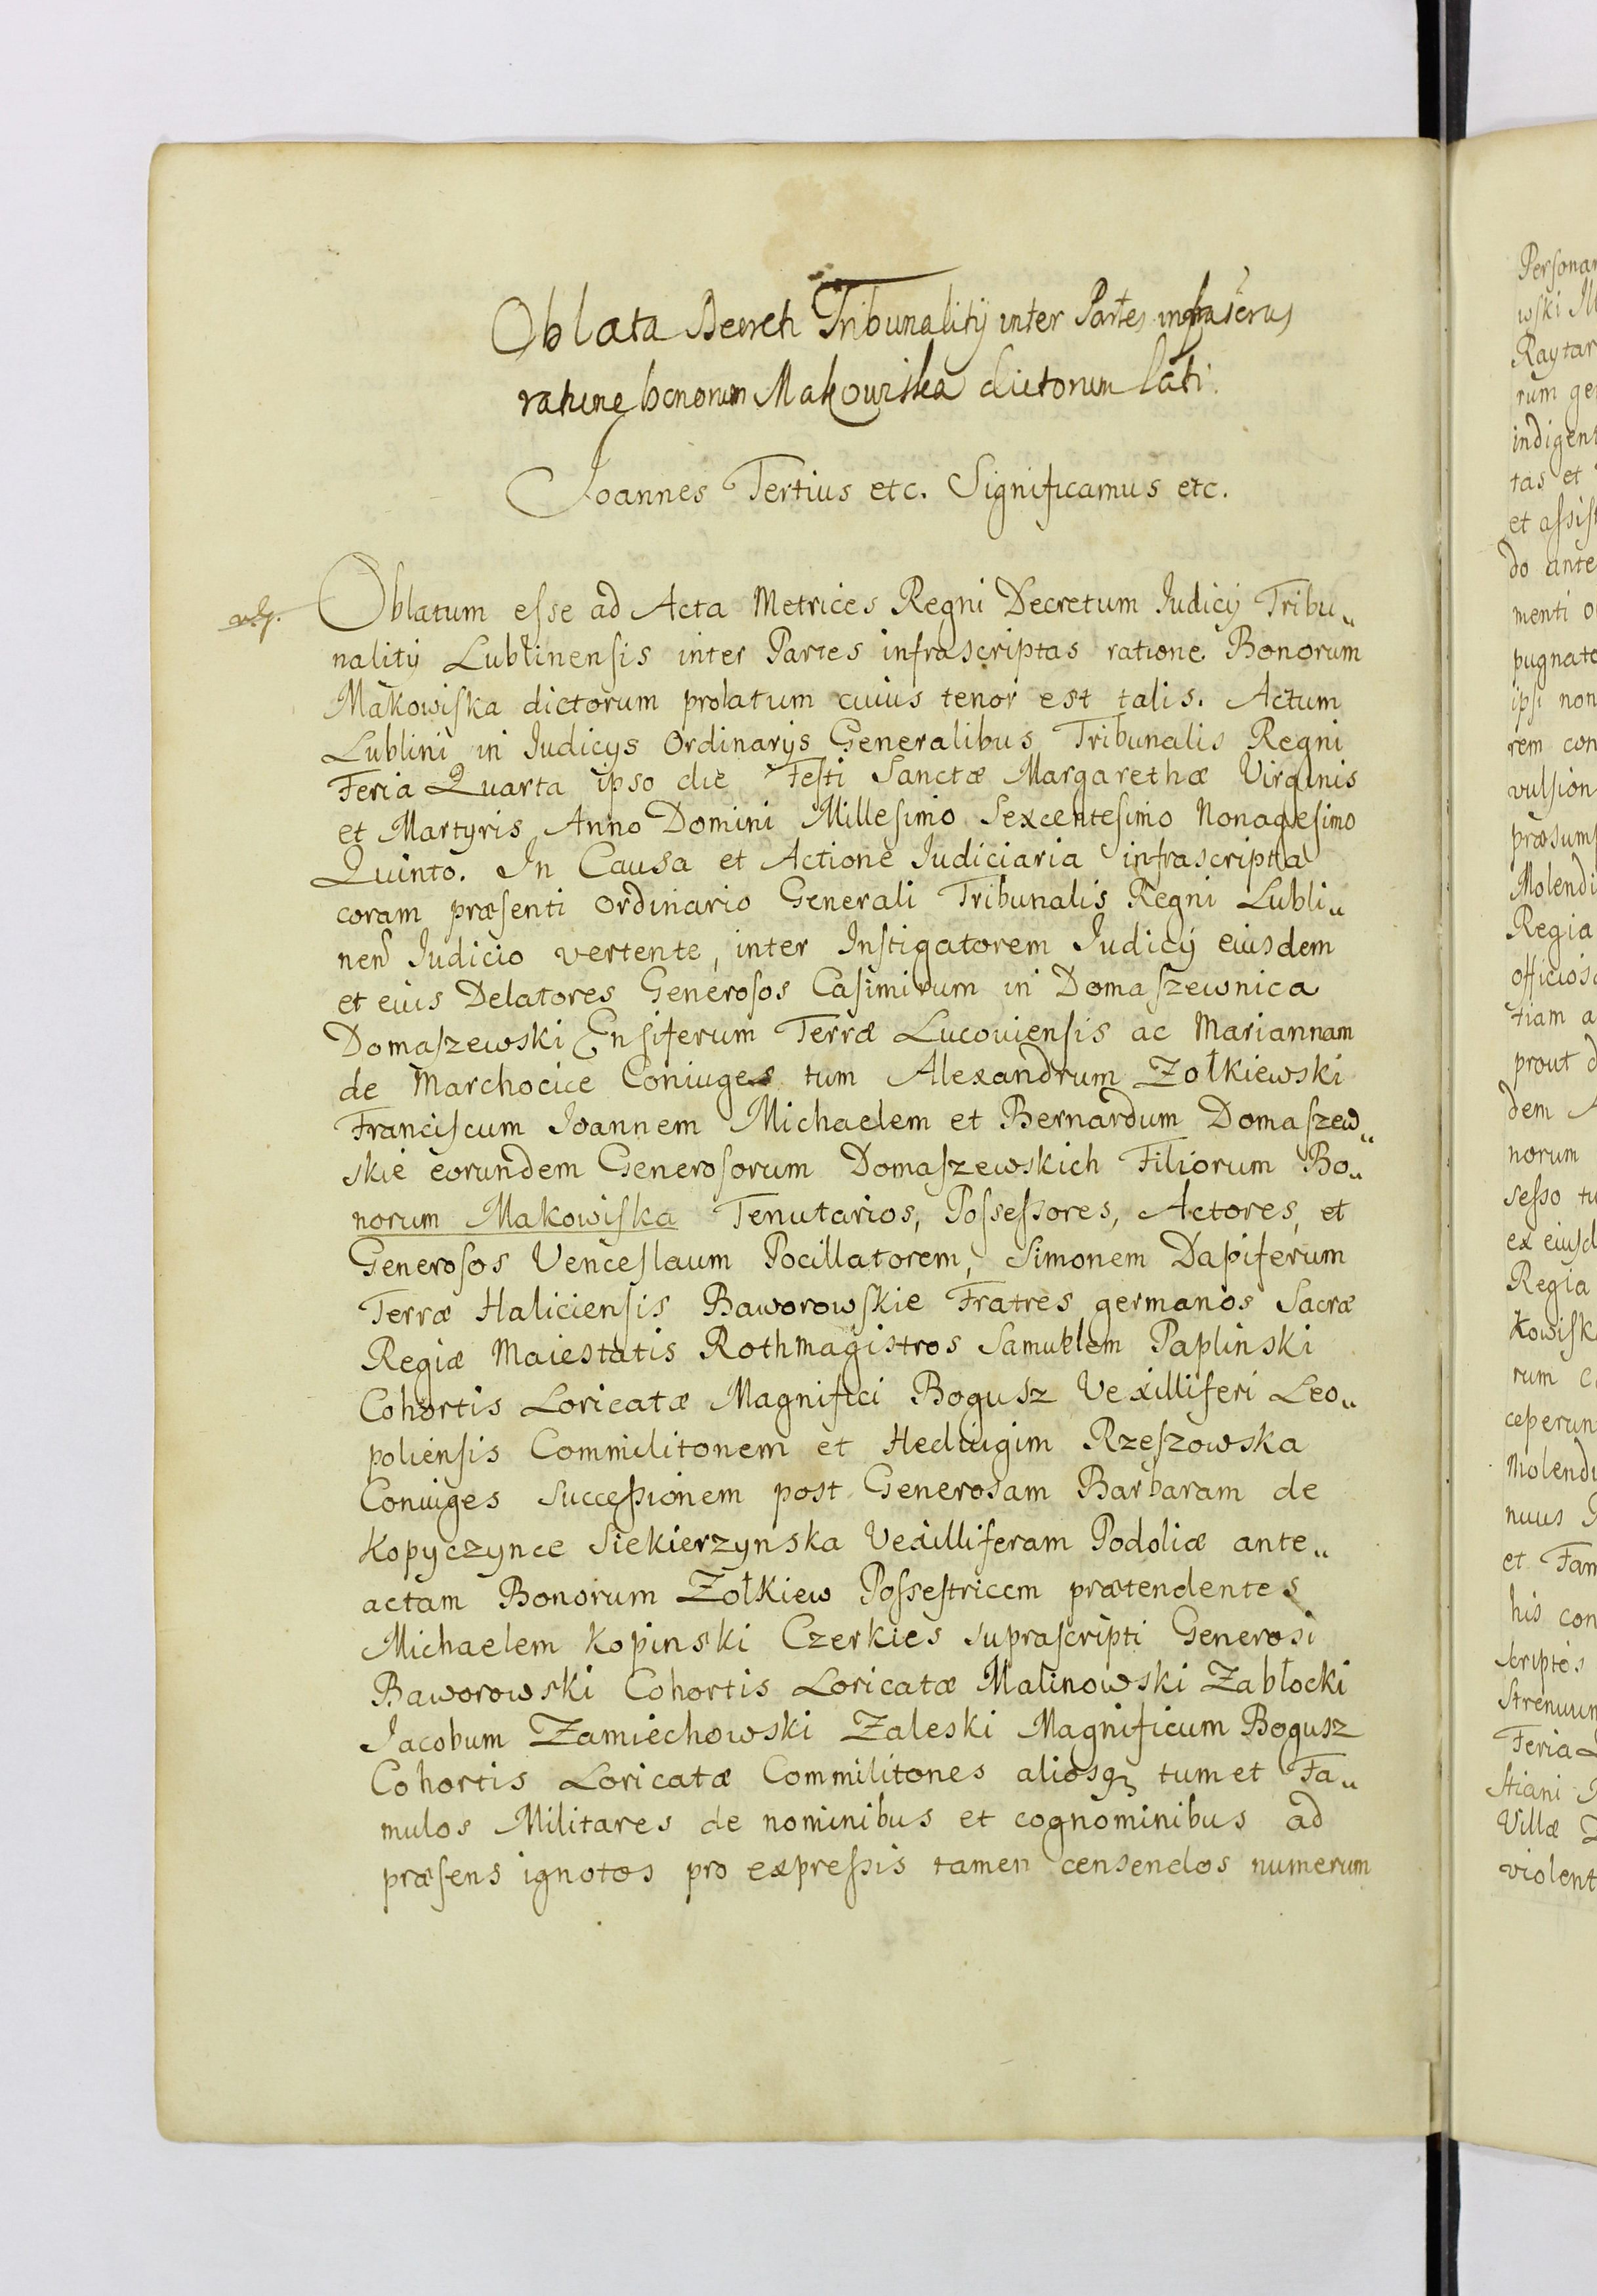 Oblata Decreti Tribunalitij inter Partes infrascrias
ratione bonorum Makowiska dictorum lati.
Joannes Tertius etc. Significamus etc.
Oblatum esse ad Acta Metrices Regni Decretum Judicij Tribu„
nalitij Lublinensis inter Partes infrascriptas ratione Bonorum
Makowiska dictorum prolatum cuius tenor est talis. Actum
Lublini in Judicijs Ordinarijs Generalibus Tribunalis Regni
Feria Quarta ipso die Festi Sanctæ Margarethæ Virginis
et Martyris Anno Domini Millesimo Sexcentesimo Nonagesimo
Quinto. In Causa et Actione Judiciaria infrascripta
coram præsenti Ordinario Generali Tribunalis Regni Lubli„
nen Judicio vertente, inter Instigatorem Judicij eiusdem
et eius Delatores Generosos Casimirum in Domaszewnica
Domaszewski Ensiferum Terræ Lucoviensis ac Mariannam
de Marchocice Coniuges tum Alexandrum Zołkiewski
Franciscum Joannem Michaelem et Bernardum Domaszew„
skie eorundem Generosorum Domaszewskich Filiorum Bo„
norum Makowiska Tenutarios, Possessores, Actores, et
Generosos Venceslaum Pocillatorem, Simonem Dapiferum
Terræ Haliciensis Baworowskie Fratres germanos Sacræ
Regiæ Maiestatis Rothmagistros Samuelem Paplinski
Cohortis Loricatæ Magnifici Bogusz Vexilliferi Leo„
poliensis Commilitonem et Hedvigim Rzeszowska
Coniuges Successionem post Generosam Barbaram de
Kopyczynce Siekierzynska Vexilliferam Podoliæ ante„
actam Bonorum Zołkiew Possestricem prætendentes
Michaelem Kopinski Czerkies suprascripti Generosi
Baworowski Cohortis Loricatæ Malinowski Zabłocki
Jacobum Zamiechowski Zaleski Magnificum Bogusz
Cohortis Loricatæ Commilitones aliosq₃ tum et Fa„
mulos Militares de nominibus et cognominibus ad
præsens ignotos pro expressis tamen censendos numerum